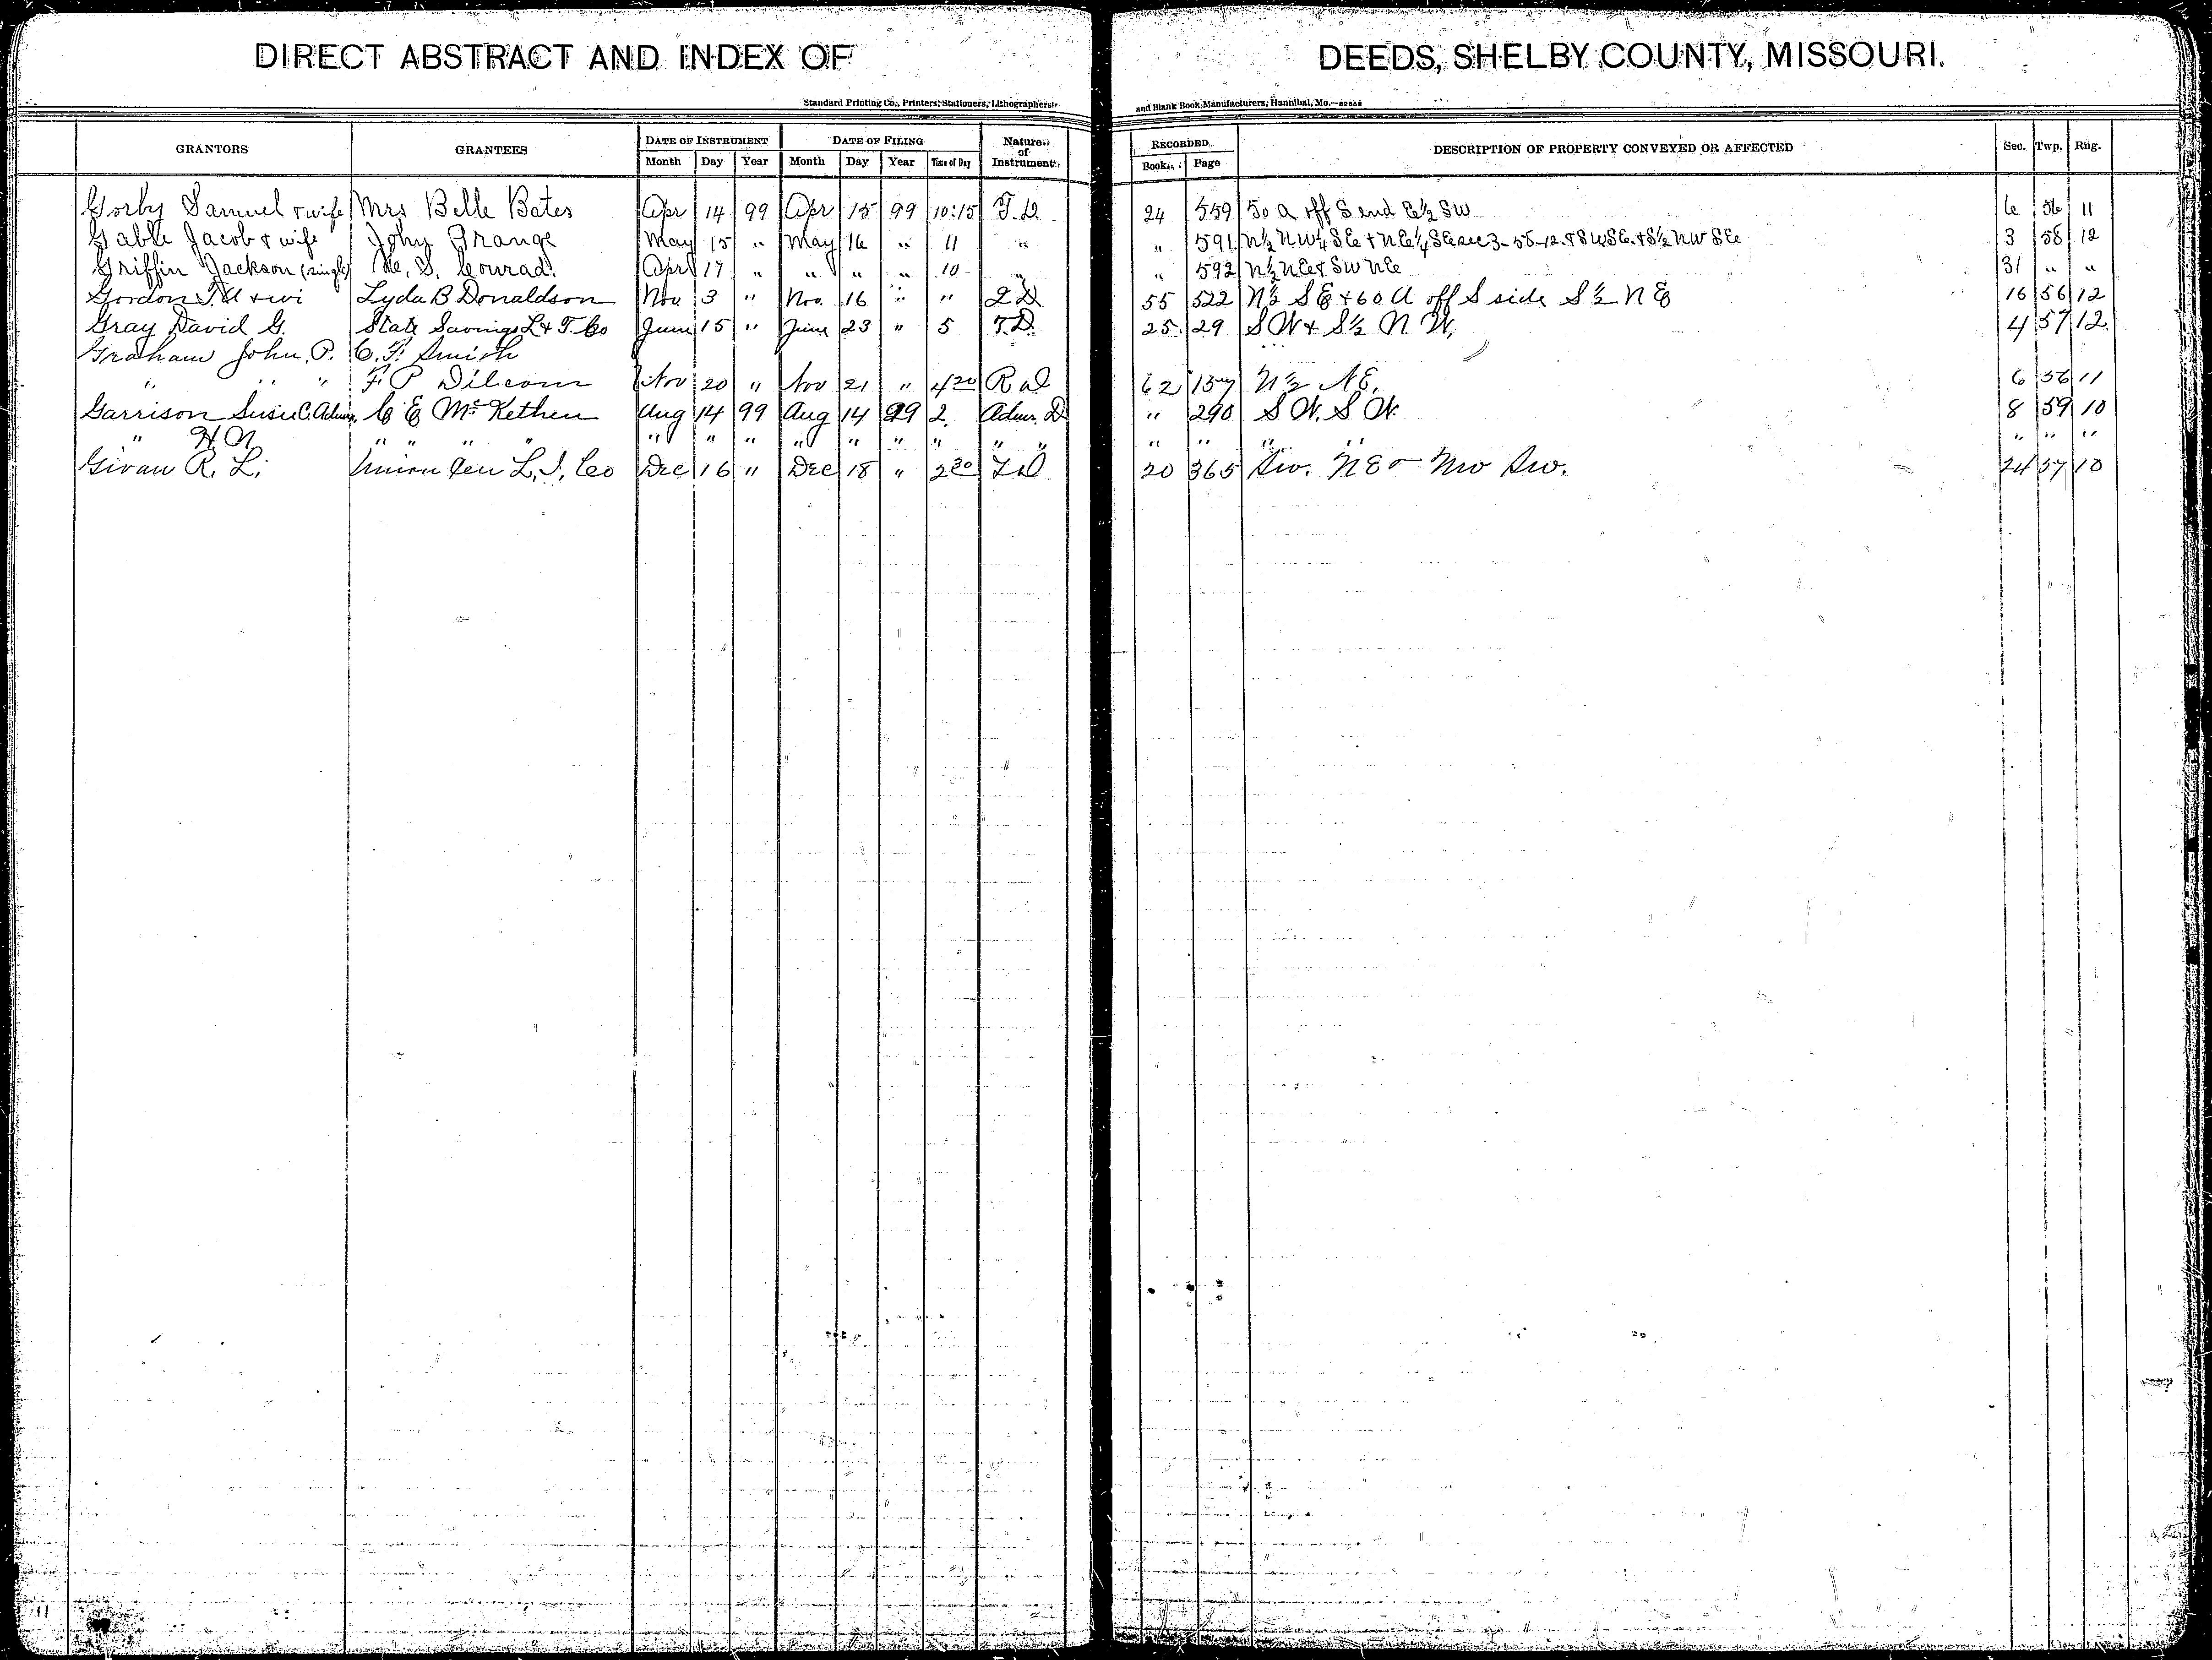 DIRECT ABSTRACT AND INDEX OF DEEDS, SHELBY COUNTY, MISSOURI.
Standard Printing Co., Printers, Stationers, Lithographers and Blank Book Manufacturers, Hannibal, Mo.
GRANTORS GRANTEES DATE OF INSTRUMENT DATE OF FILING Nature of Instrument RECORDED DESCRIPTION OF PROPERTY CONVEYED OR AFFECTED Sec. Twp. Rng.
Month Day Year Month Day Year Time of Day Book Page
Gorby Samuel & wife Mrs Belle Bates Apr 14 99 Apr 15 99 10:15 T.D. 24 559 50 a off S end E½ SW 6 56 11
Gable Jacob & wife John Frange May 15 " May 16 " 11 " " 591 N½ NW¼ SE & NE¼ SE sec 3-58-12. & SW SE. & S½ NW SE 3 58 12
Griffin Jackson (single) S. Conrad. Apr 17 " " " " 10 " " 592 N½ NE & SW NE 31 " "
Gordon & wi Lyda B Donaldson Nov 3 " Nov. 16 " " 55 522 N½ SE & 60 a off S side S½ NE 16 56 12
Gray David G. State Savings L & T. Co June 15 " June 23 " 5 T.D. 25 29 SW & S½ NW. 4 57 12.
Graham John P. C. F. Smith
" " " F. P. Dilcom Nov 20 " Nov 21 " 4 20 R D 62 157 N½ NE. 6 56 11
Garrison Susie C. Admx. C E McKethen Aug 14 99 Aug 14 99 2. Admr. D " 290 SW. SW. 8 59 10
" H N " " " " " " " " " " " " " " " " " " " " "
Givan R. L. Union Cen L. I. Co Dec 16 " Dec 18 " 2 30 20 365 Sw. NE & Nw Sw. 24 57 10